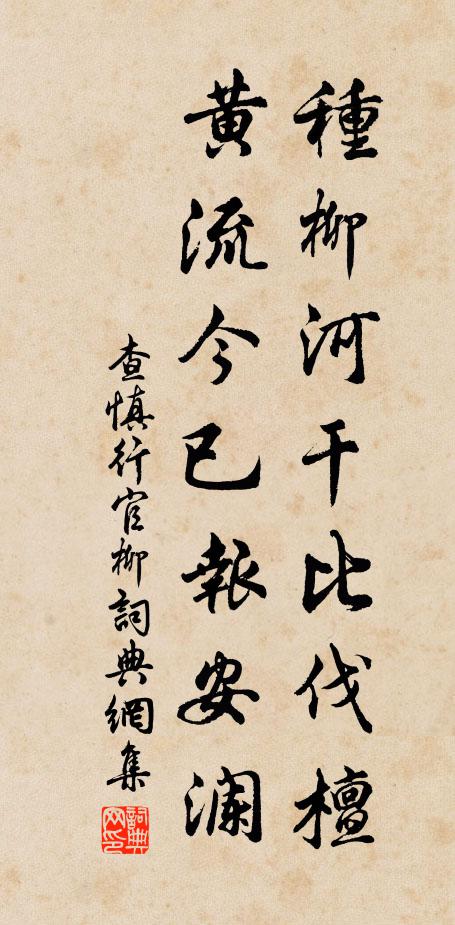 種柳河干比伐檀
黃流今已報安瀾
查慎行官柳詞典網集
詞典網印